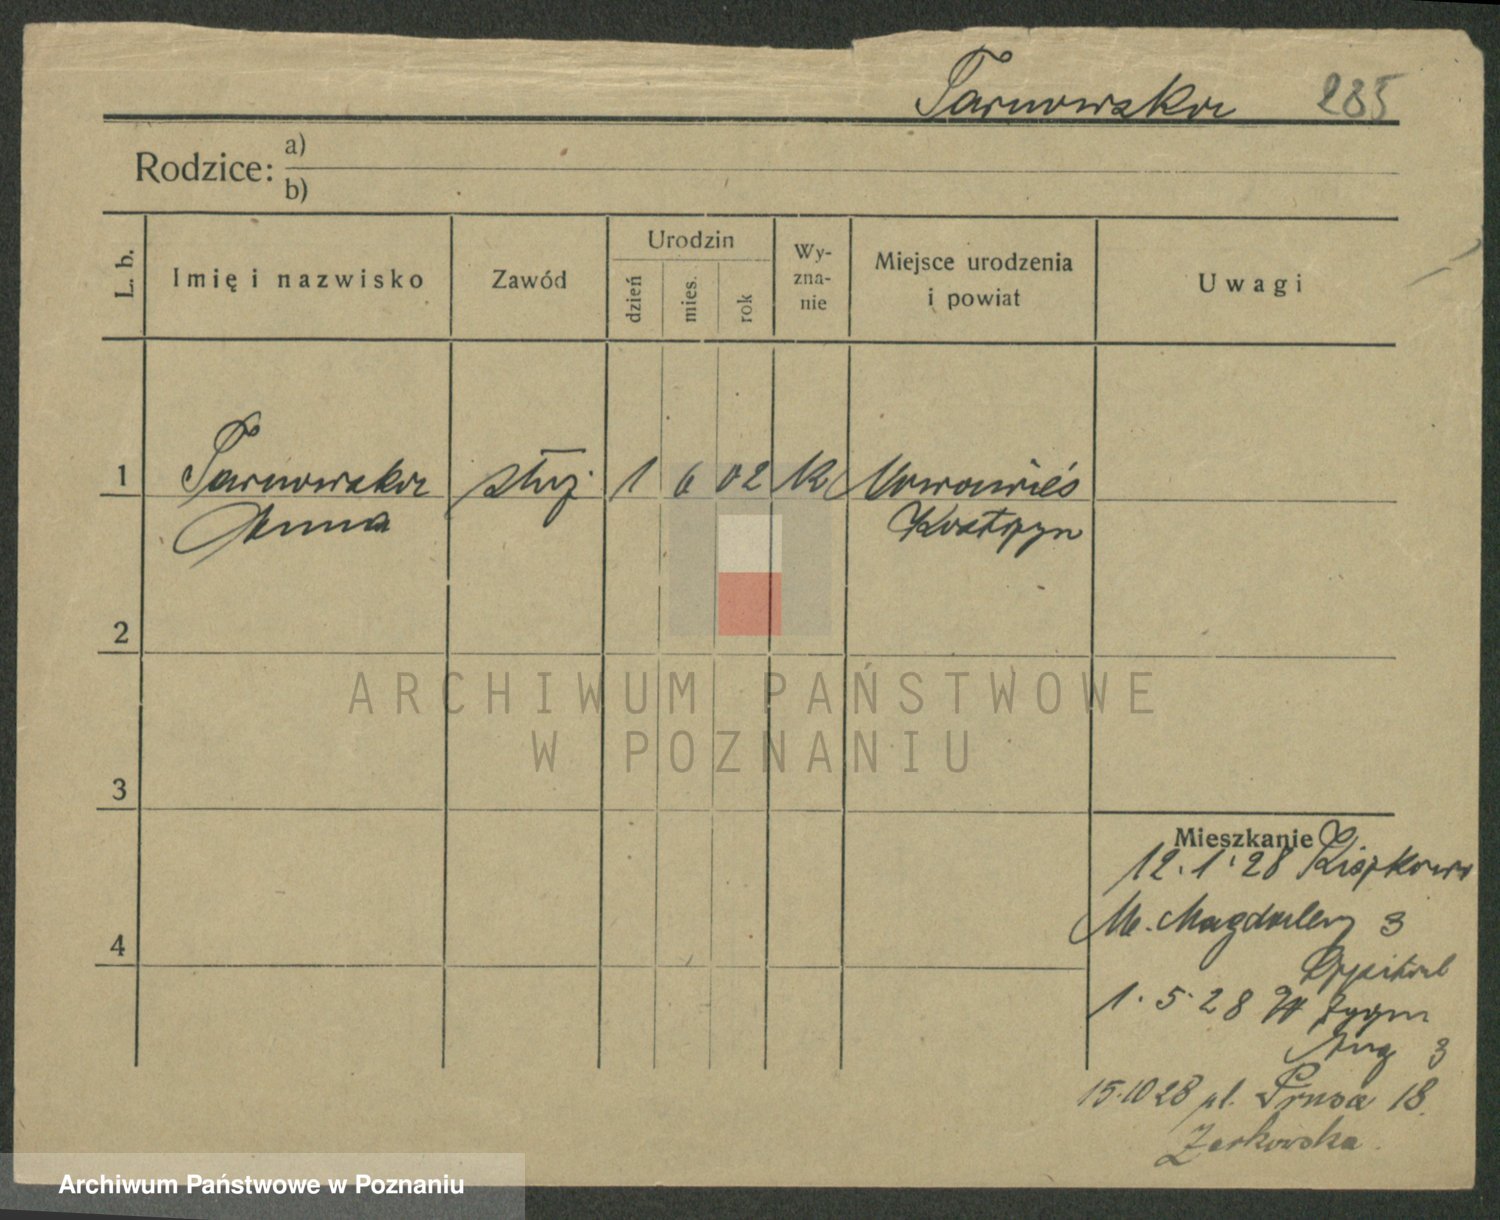 Tarnowska 285
Rodzice: a)
b)
L. b. Imię i nazwisko Zawód Urodzin dzień mies. rok Wy-zna-nie Miejsce urodzenia i powiat Uwagi
1 Tarnowska służ. 1 6 02 K Nowawieś
Anna Kostrzyn
2
3
4
Mieszkanie
12.1.28 Kiszkowo
M. Magdaleny 3
Szpital
1.5.28 Zygm
Aug 3
15.10 28 pl. Prusa 18.
Żerkowska.
ARCHIWUM PAŃSTWOWE
W POZNANIU
Archiwum Państwowe w Poznaniu